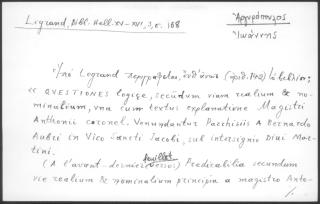 Legrand, Bibl. Hell. XV-XVI, 3, σ. 168
Ἀργυρόπουλος
Ἰωάννης
Ὑπὸ Legrand περιγράφεται,
« QUESTIONES logice, secundum viam realium & no-
minalium, una cum textus explanatione Magistri
Anthonii coronel. Venundantur Parrhisiis A Bernardo
Aubri in Vico Sancti Jacobi, sub intersignio Diui Mar-
tini.
(A l'avant-dernier feuillet verso:) Predicabilia secundum
vie realium & nominalium principia a magistro Anto-